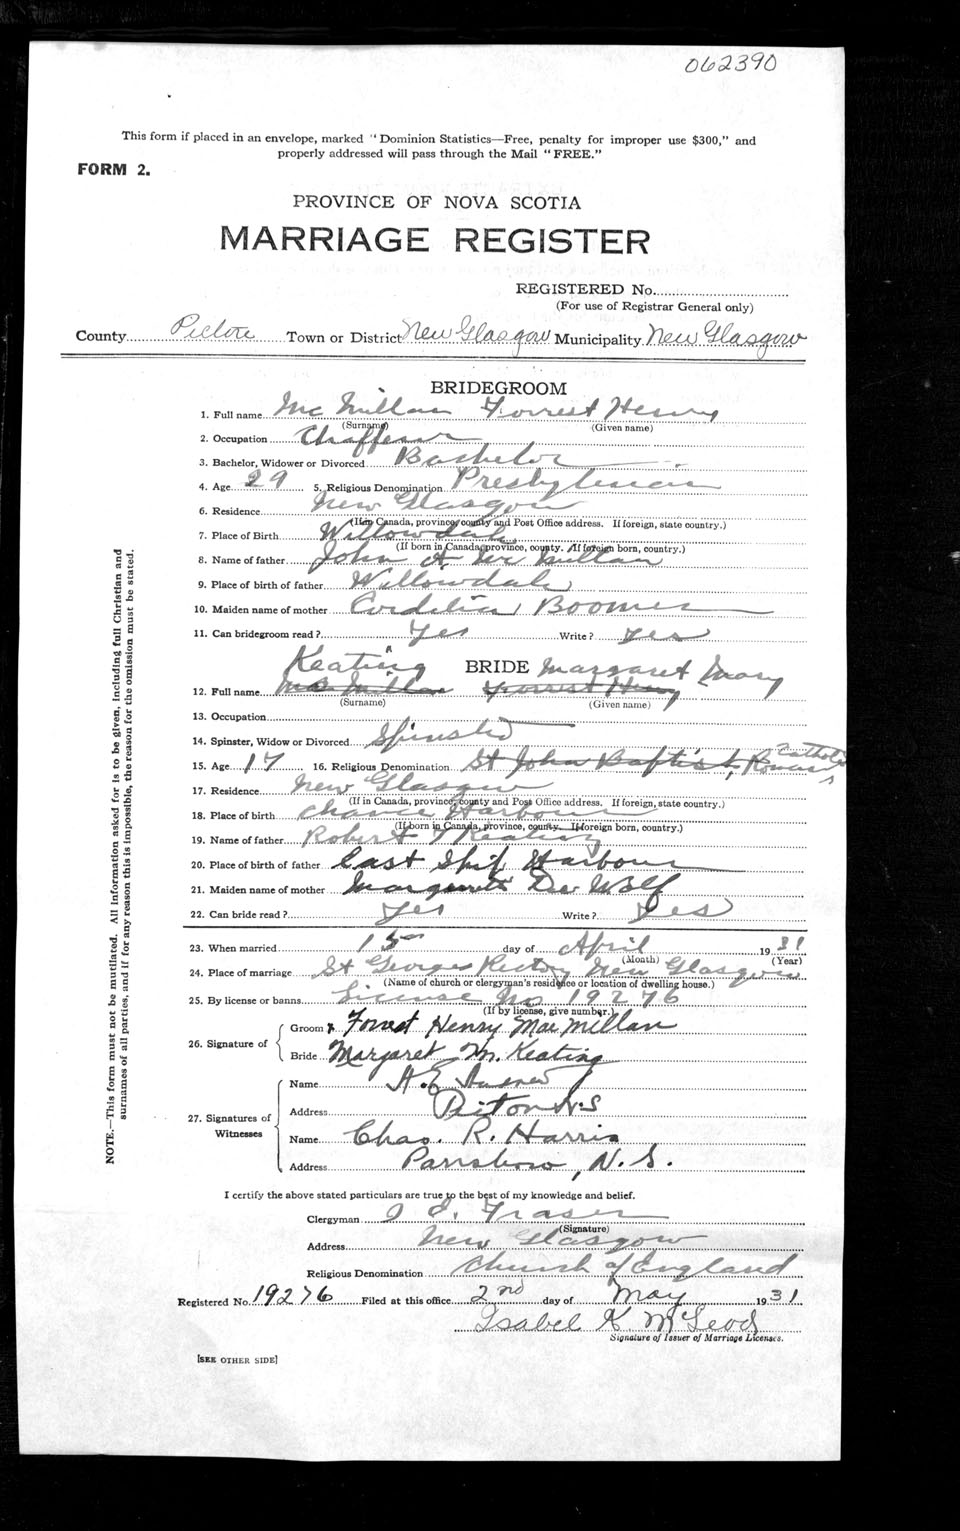 062390
This form if placed in an envelope, marked "Dominion Statistics—Free, penalty for improper use $300," and
properly addressed will pass through the Mail "FREE."
FORM 2.
PROVINCE OF NOVA SCOTIA
MARRIAGE REGISTER
REGISTERED No.
(For use of Registrar General only)
County Pictou Town or District New Glasgow Municipality New Glasgow
BRIDEGROOM
1. Full name Mc Millan Forrest Henry
(Surname) (Given name)
2. Occupation Chaffeur
3. Bachelor, Widower or Divorced Bachelor
4. Age 29 5. Religious Denomination Presbyterian
6. Residence New Glasgow
(If in Canada, province, county and Post Office address. If foreign, state country.)
7. Place of Birth Willowdale
(If born in Canada, province, county. If foreign born, country.)
8. Name of father John A Mc Millan
9. Place of birth of father Willowdale
10. Maiden name of mother Cordelia Boomer
11. Can bridegroom read? Yes Write? Yes
Keating BRIDE Margaret Mary
12. Full name Mc Millan Forrest Henry
(Surname) (Given name)
13. Occupation
14. Spinster, Widow or Divorced Spinster
15. Age 17 16. Religious Denomination St John Baptist, Roman Catholic
17. Residence New Glasgow
(If in Canada, province, county and Post Office address. If foreign, state country.)
18. Place of birth Chance Harbour
(If born in Canada, province, county. If foreign born, country.)
19. Name of father Robert Keating
20. Place of birth of father East Ship Harbour
21. Maiden name of mother De Wolf
22. Can bride read? Yes Write? Yes
23. When married 15 day of April 1931
(Month) (Year)
24. Place of marriage St Georges Rectory New Glasgow
(Name of church or clergyman's residence or location of dwelling house.)
25. By license or banns License No 19276
(If by license, give number.)
26. Signature of
Groom Forrest Henry MacMillan
Bride Margaret M. Keating
27. Signatures of Witnesses
Name A.E.
Address Picton N.S
Name Chas. R. Harris
Address Parrsboro, N.S.
I certify the above stated particulars are true to the best of my knowledge and belief.
Clergyman Fraser
(Signature)
Address New Glasgow
Religious Denomination Church of England
Registered No. 19276 Filed at this office 2nd day of May 1931
Isabel K McLeod
Signature of Issuer of Marriage Licenses.
[SEE OTHER SIDE]
NOTE.—This form must not be mutilated. All information asked for is to be given, including full Christian and
surnames of all parties, and if for any reason this is impossible, the reason for the omission must be stated.